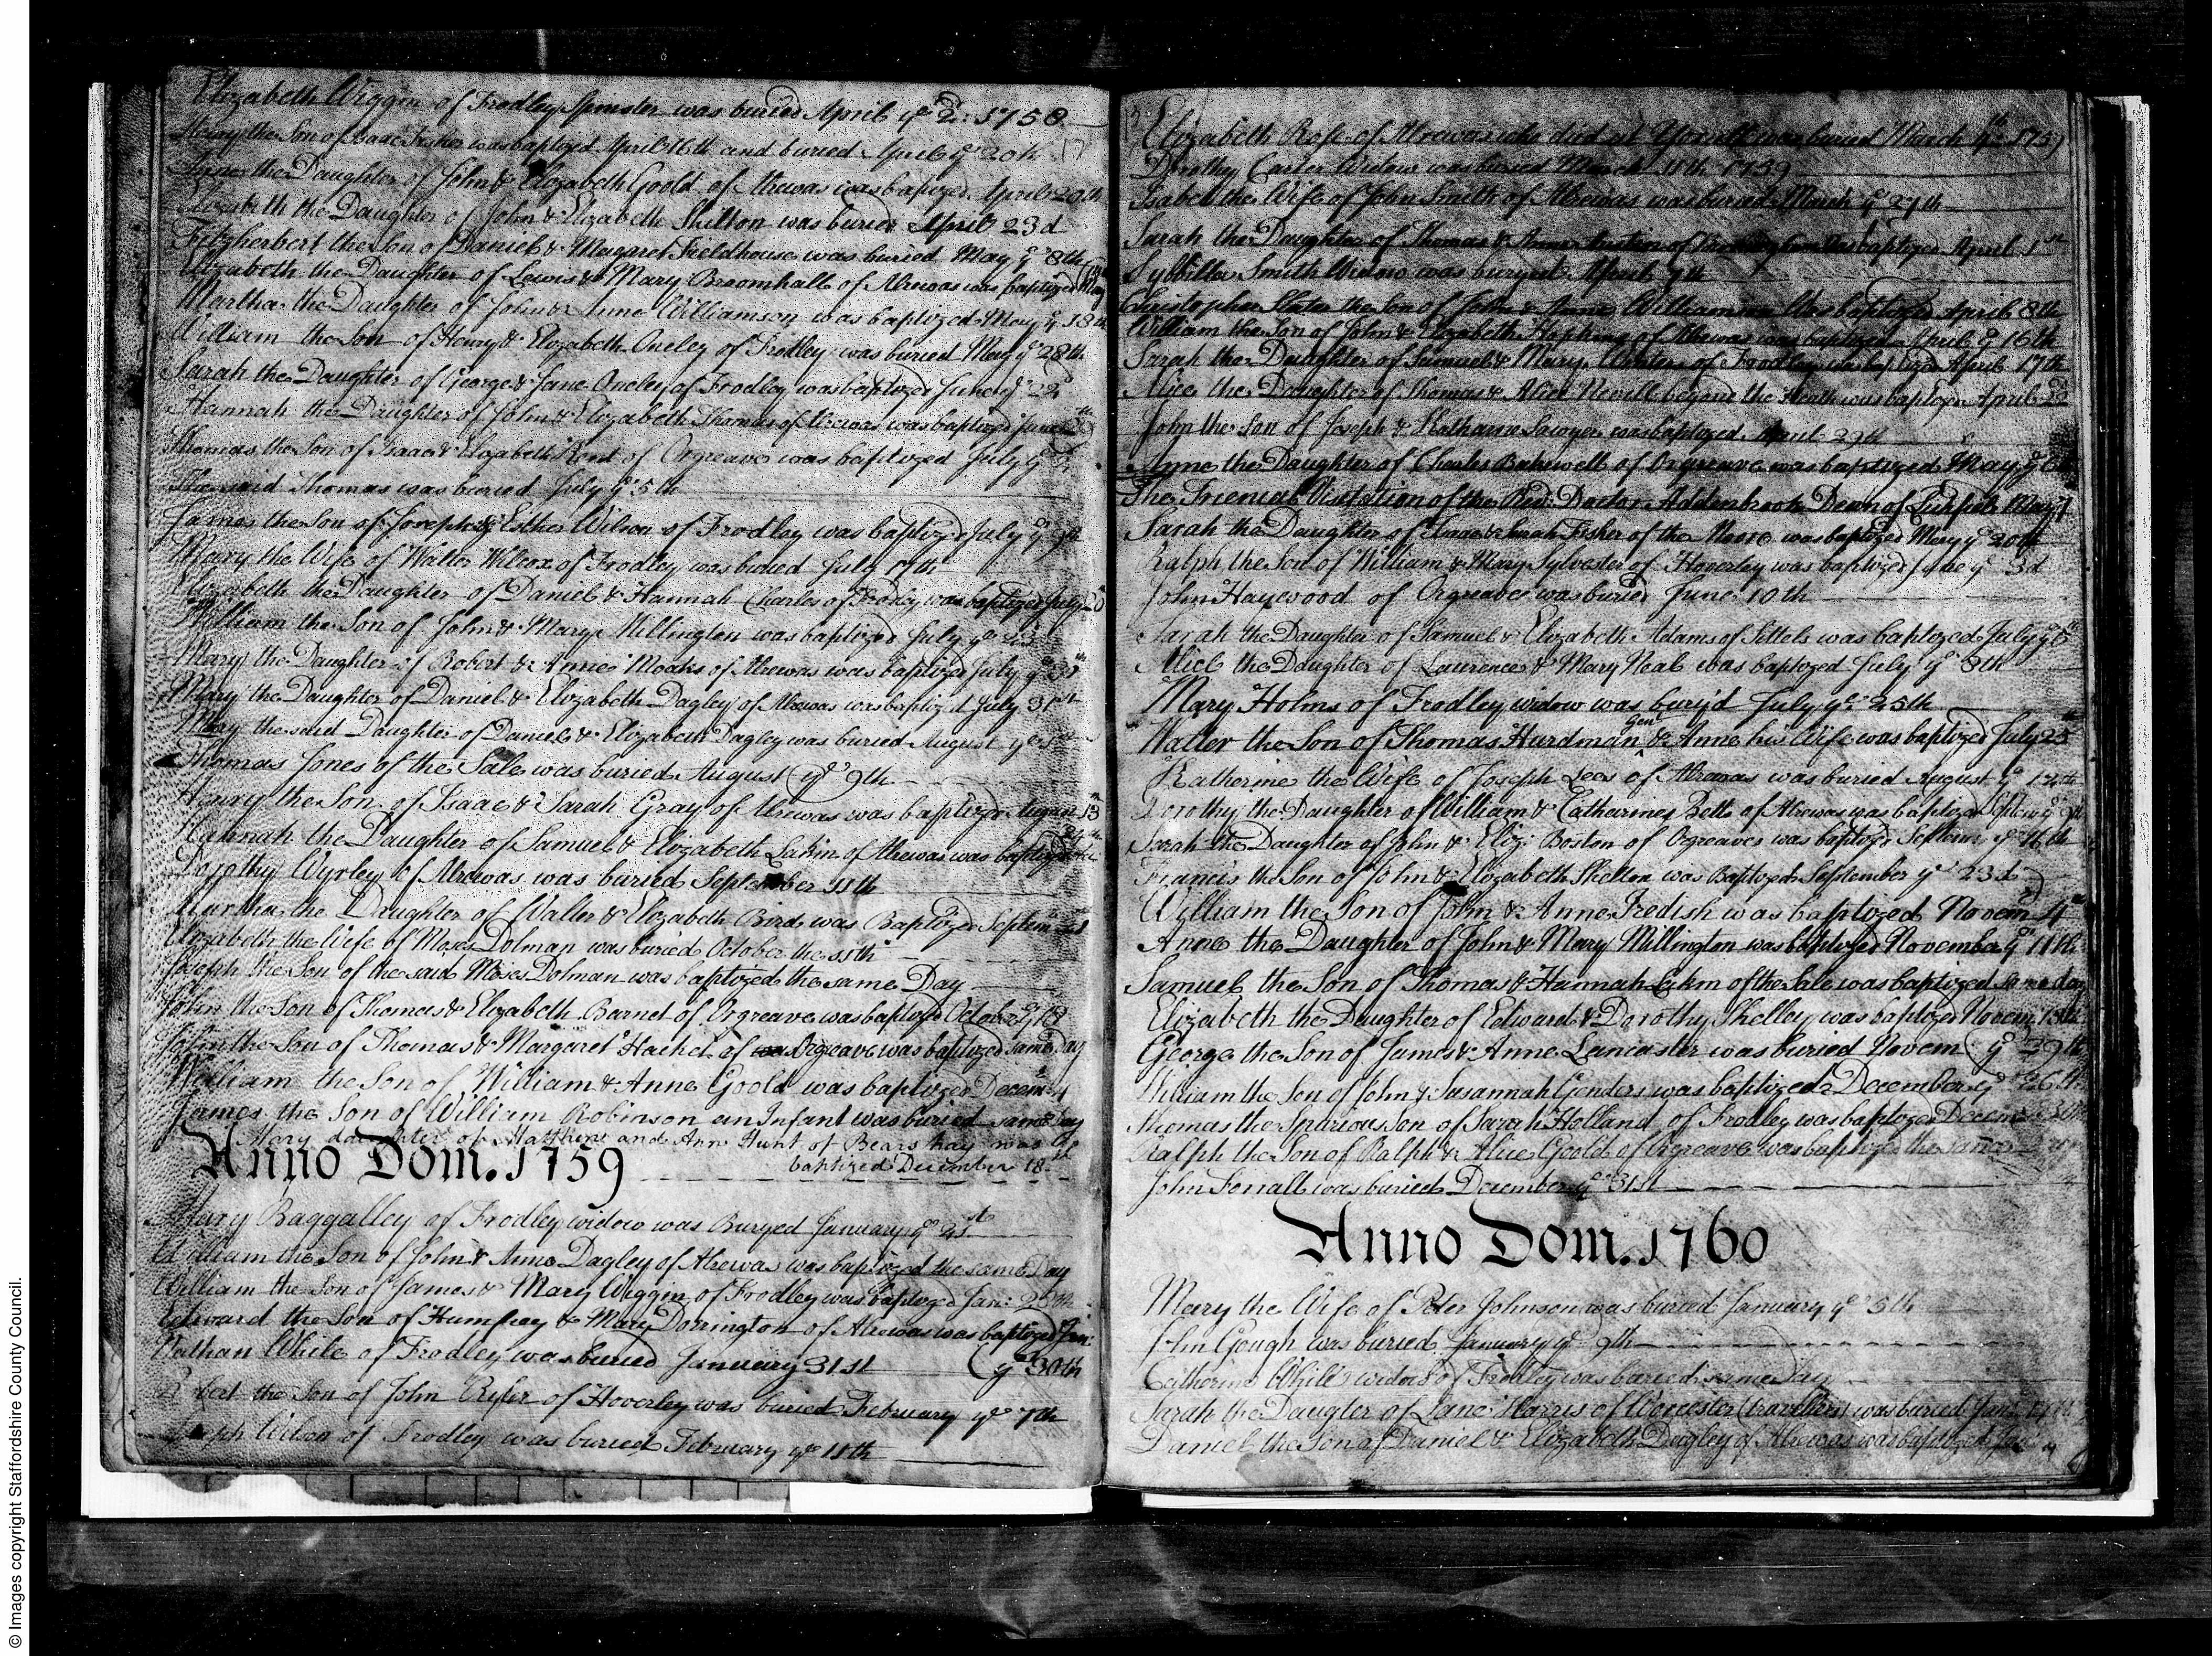 Elizabeth Wiggin of Frodley Spinster was buried April ye 2d: 1758
Henry the Son of Isaac Fisher was baptized April 16th and buried April ye 20th 17
Anne the Daughter of John & Elizabeth Goold of Alrewas was baptized April 20th
Elizabeth the Daughter of John & Elizabeth Skilton was buried April 23d
Fitzherbert the Son of Daniel & Margaret Fieldhouse was buried May ye 8th
Elizabeth the Daughter of Lewis & Mary Broomhall of Alrewas was baptized May
Martha the Daughter of John & Anne Williamson was baptized May ye 18th
William the Son of Henry & Elizabeth Oneley of Frodley was buried May ye 28th
Sarah the Daughter of George & Jane Oneley of Frodley was baptized June ye 22d
Hannah the Daughter of John & Elizabeth Thomas of Alrewas was baptized June
Thomas the Son of Isaac & Elizabeth of Orgreave was baptized July ye
The said Thomas was buried July ye 5th
James the Son of Joseph & Esther Wilson of Frodley was baptized July ye 9th
Mary the Wife of Walter Wilcox of Frodley was buried July 17th
Elizabeth the Daughter of Daniel & Hannah Charles of Frodley was baptized July 20
William the Son of John & Mary Millington was baptized July ye 23d
Mary the Daughter of Robert & Anne Moaks of Alrewas was baptized July ye
Mary the Daughter of Daniel & Elizabeth Dagley of Alrewas was baptiz'd July 31st
Mary the said Daughter of Daniel & Elizabeth Dagley was buried August ye
Thomas Jones of the Sale was buried August ye 9th
Henry the Son of Isaac & Sarah Gray of Alrewas was baptized August 13th
Hannah the Daughter of Samuel & Elizabeth Lakin of Alrewas was baptized
Dorothy Wyrley of Alrewas was buried September 11th
Martha the Daughter of Walter & Elizabeth Bird was Baptized Septem
Elizabeth the Wife of Moses Dolman was buried October the 11th
Joseph the Son of the said Moses Dolman was baptized the same Day
John the Son of Thomas & Elizabeth Barnet of Orgreave was baptized October ye 18
John the Son of Thomas & Margaret Hachet of Orgreave was baptized same Day
William the Son of William & Anne Goold was baptized Decem:
James the Son of William Robinson an Infant was buried same Day
Mary daughter of Matthew and Ann Hunt of Bears hay was
Anno Dom. 1759 baptized December 18th
Mary Baggalley of Frodley widow was Buryed January ye 21st
William the Son of John & Anne Dagley of Alrewas was baptized the same Day
William the Son of James & Mary Wiggin of Frodley was baptized Jan: 28th
Edward the Son of Humfrey & Mary Dorrington of Alrewas was baptized Jan:
Nathan While of Frodley was buried January 31st (ye 30th
the Son of John of Hoverley was buried February ye 7th
Joseph Wilson of Frodley was buried February ye 11th
Elizabeth Rose of Alrewas who died at was buried March 1759
Dorothy Carter Widow was buried March 11th 1759
Isabel the Wife of John Smith of Alrewas was buried March ye 27th
Sarah the Daughter of Thomas & Anne Austin of was baptized April 1st
Sybbilla Smith Widow was buryed April 7th
Christopher Slater the Son of John & Anne Williamson Was baptized April 8th
William the Son of John & Elizabeth Hopkins of Alrewas was baptized April ye 16th
Sarah the Daughter of Samuel & Mary of Frodley was baptized April 17th
Alice the Daughter of Thomas & Alice Nevill beyond the Heath was baptized April 22
John the Son of Joseph & Katharine Sawyer was baptized April 29th
Anne the Daughter of Charles Bakewell of Orgreave was baptized May ye 6th
The Trienial Visitation of the Revd: Doctor Addenbrook Dean of Lichfield May 7
Sarah the Daughter of Isaac & Sarah Fisher of the Moore was baptized May ye 20th
Ralph the Son of William & Mary Sylvester of Hoverley was baptized June ye 3d
John Haywood of Orgreave was buried June 10th
Sarah the Daughter of Samuel & Elizabeth Adams of Settels was baptized July ye 6th
Alice the Daughter of Laurence & Mary Neal was baptized July ye 8th
Mary Holms of Frodley widow was bury'd July ye 25th
Walter the Son of Thomas Hurdman Gent & Anne his Wife was baptized July 25th
Katherine the Wife of Joseph Lees of Alrewas was buried August ye 12th
Dorothy the Daughter of William & Catharine Betts of Alrewas was baptized Septem ye 9th
Sarah the Daughter of John & Eliz: Boston of Orgreave was baptized Septem: ye 16th
Francis the Son of John & Elizabeth Skelton was Baptized September ye 23d
William the Son of John & Anne Fredish was baptized Novem 4th
Anne the Daughter of John & Mary Millington was baptized November ye 11th
Samuel the Son of Thomas & Hannah Lakin of the Sale was baptized same day
Elizabeth the Daughter of Edward & Dorothy Shelley was baptized Novem 18th
George the Son of James & Anne Lancaster was buried Novem ye 29th
William the Son of John & Susannah Genders was baptized December ye 26th
Thomas the Spurious Son of Sarah Holland of Frodley was baptized Decem 30th
Ralph the Son of Ralph & Alice Goold of Orgreave was baptized the same Day
John Forrall was buried December ye 31st
Anno Dom. 1760
Mary the Wife of Peter Johnson was buried January ye 5th
John Gough was buried January ye 9th
Catherine While widow of Frodley was buried same Day
Sarah the Daugter of Jane Harris of Worcester (travellers) was buried Jan: 14th
Daniel the Son of Daniel & Elizabeth Dagley of Alrewas was baptized Jan
© Images copyright Staffordshire County Council.